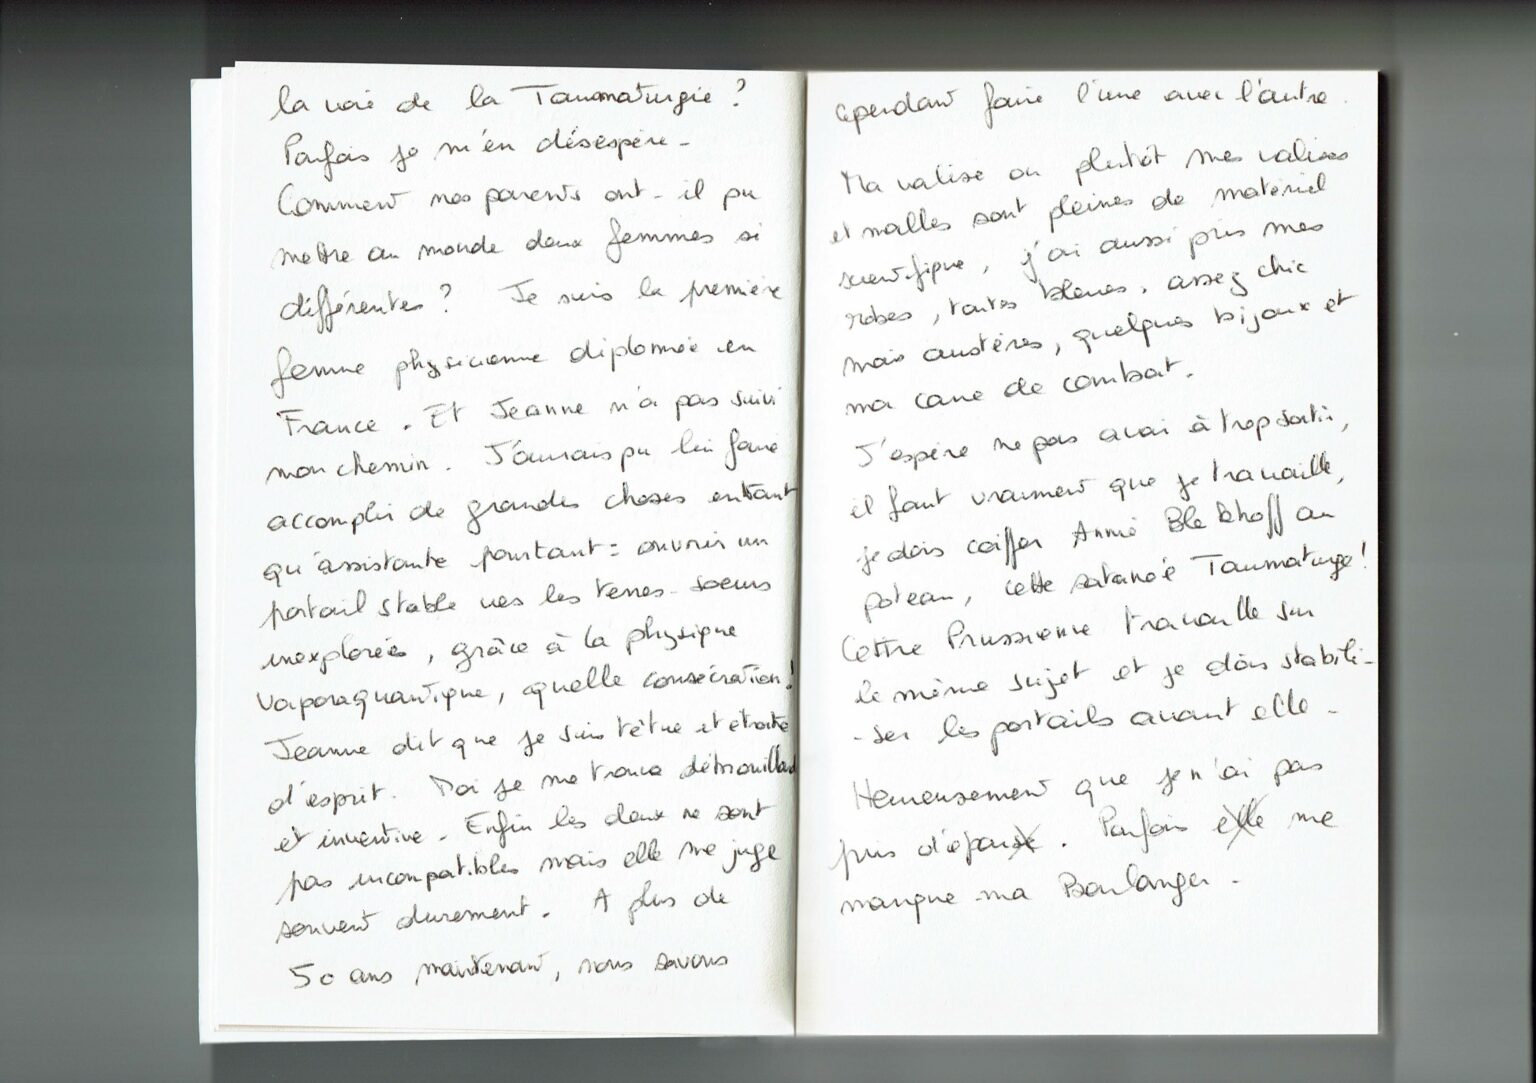 la voie de la Taumaturgie ?
Parfois je m'en désespère -
Comment nos parents ont-il pu
mettre au monde deux femmes si
différentes ? Je suis la première
femme physicienne diplomée en
France. Et Jeanne n'a pas suivi
mon chemin. J'aurais pu lui faire
accomplir de grandes choses en tant
qu'assistante pourtant : ouvrir un
portail stable vers les terres-soeurs
inexplorées, grâce à la physique
vaporaquantique, quelle consécration !
Jeanne dit que je suis têtue et étroite
d'esprit. Moi je me trouve débrouillard
et inventive. Enfin les deux ne sont
pas incompatibles mais elle me juge
souvent durement. A plus de
50 ans maintenant, nous savons
cependant faire l'une avec l'autre.
Ma valise ou plutôt mes valises
et malles sont pleines de matériel
scientifique, j'ai aussi pris mes
robes, toutes bleues, assez chic
mais austères, quelques bijoux et
ma cane de combat.
J'espère ne pas avoir à trop sortir,
il faut vraiment que je travaille,
je dois coiffer Annie au
poteau, cette satanée Taumaturge !
Cettre Prussienne travaille sur
le même sujet et je dois stabili-
-ser les portails avant elle -
Heureusement que je n'ai pas
pris d'épouse. Parfois elle me
manque ma Boulanger -